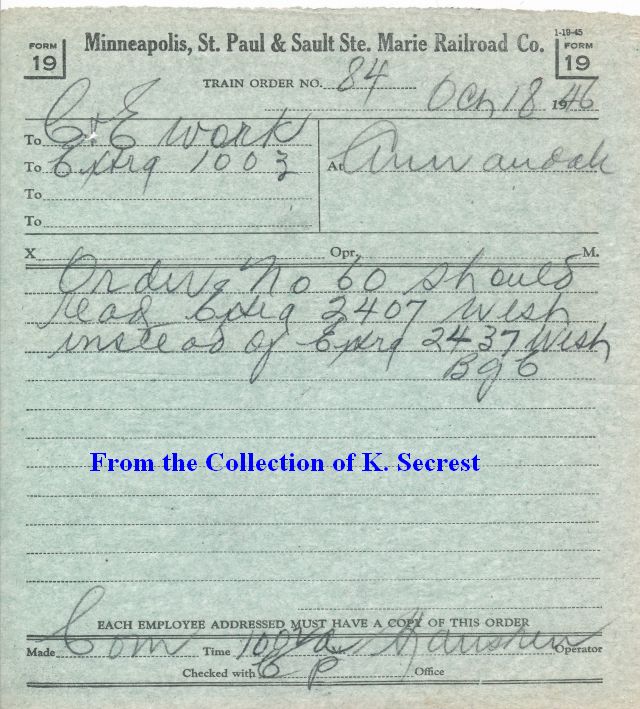 FORM 19
Minneapolis, St. Paul & Sault Ste. Marie Railroad Co.
1-19-45
FORM 19
TRAIN ORDER NO. 84
Oct 18 1946
To C&E Work
To Extra 1003 At Annandale
To
To
X Opr. M.
Order No 60 should
read Extra 2407 West
instead of Extra 2437 West
From the Collection of K. Secrest
EACH EMPLOYEE ADDRESSED MUST HAVE A COPY OF THIS ORDER
Made Com Time Operator
Checked with Office